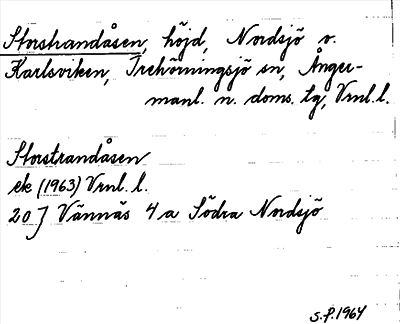 Storstrandåsen, höjd, Nordsjö o.
Karlsviken, Trehörningsjö sn, Ånger-
manl. n. doms. tg, Vrnl. l.
Storstrandåsen
ek (1963) Vrnl. l.
20 J Vännäs 4 a Södra Nordsjö
S.P. 1964